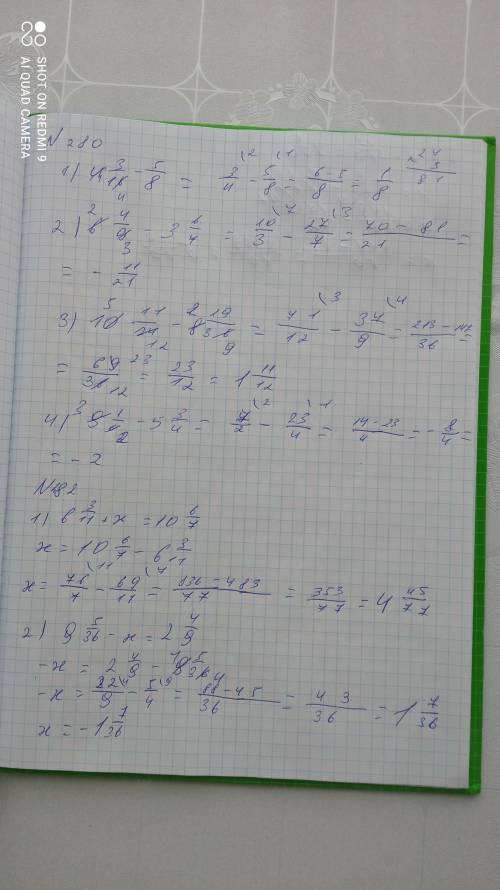 SHOT ON REDMI 9
AI QUAD CAMERA
N 280
1) 4 3/16 - 5/8 = 3/4 - 5/8 = 6-5/8 = 1/8
2) 6 4/9 - 3 6/7 = 10/3 - 27/7 = 70-81/21 =
= - 11/21
3) 10 11/21 - 8 19/36 = 41/12 - 37/9 =
= 69/36 = 23/12 = 1 11/12
4) 9 1/2 - 5 3/4 = 7/2 - 23/4 = 14-23/4 = - 8/4 =
= - 2
N282
1) 6 3/11 + x = 10 6/7
x = 10 6/7 - 6 3/11
x = 76/7 - 69/11 = 836-483/77 = 353/77 = 4 45/77
2) 9 5/36 - x = 2 4/9
-x = 2 4/9 - 9 5/36
-x = 22/9 - 5/4 = 88-45/36 = 43/36 = 1 7/36
x = -1 7/36